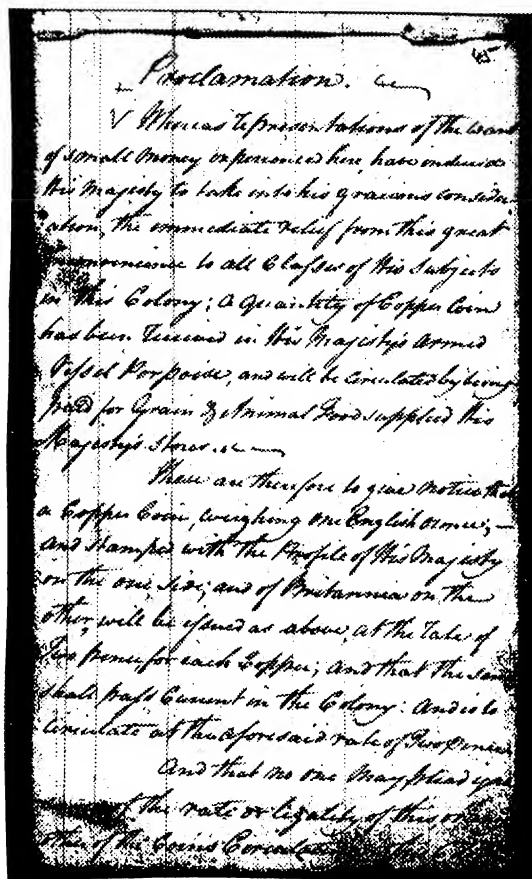 45
Proclamation.
Whereas representations of the want
of small money experienced here, have induced
His Majesty to take into his gracious consider
ation, the immediate relief from this great
inconvenience to all Classes of His Subjects
in this Colony; a Quantity of Copper Coin
has been received in His Majesty's Armed
Vessel Porpoise, and will be circulated by being
paid for Grain & Animal Food supplied His
Majesty's Stores.
These are therefore to give notice that
a Copper Coin, weighing one English ounce,
and stamped with the Profile of His Majesty
on the one side, and of Britannia on the
other, will be issued as above, at the Rate of
Two pence for each Copper; and that the same
shall pass Current in the Colony: And is to
Circulate at the aforesaid rate of Two pence
And that no one may plead
of the rate or legality of this or
other of the Coins